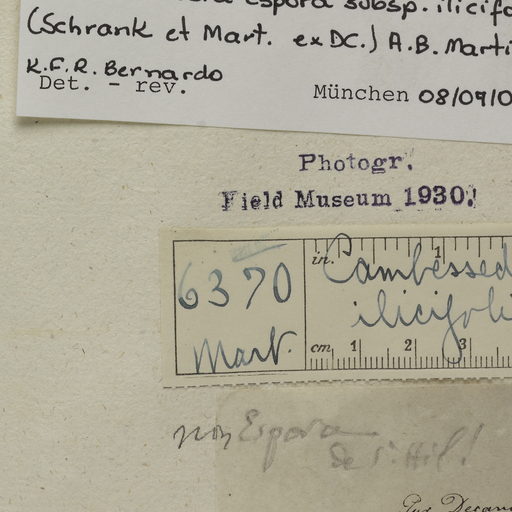 Espora subsp. ilicifo
(Schrank et Mart. ex DC.) A.B. Marti
K.F.R. Bernardo
Det. - rev. München 08/09/0
Photogr.
Field Museum 1930!
6370
Mart.
in. 1
Cambessed
ilicifoli
cm 1 2 3
non Espora
de St Hil!